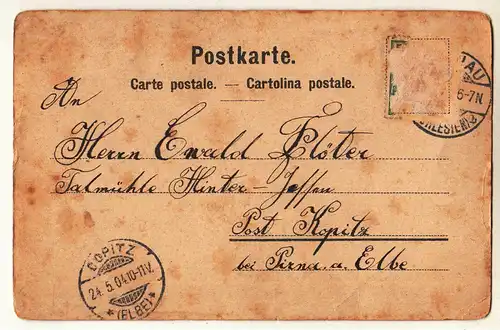 Postkarte.
Carte postale. — Cartolina postale.
An
Herrn Ewald Flöter
Talmühle Hinter-Jessen
Post Kopitz
bei Pirna a. Elbe
COPITZ
24.5.04.10-11V.
* (ELBE) *
AU
6-7N.
(SCHLESIEN)